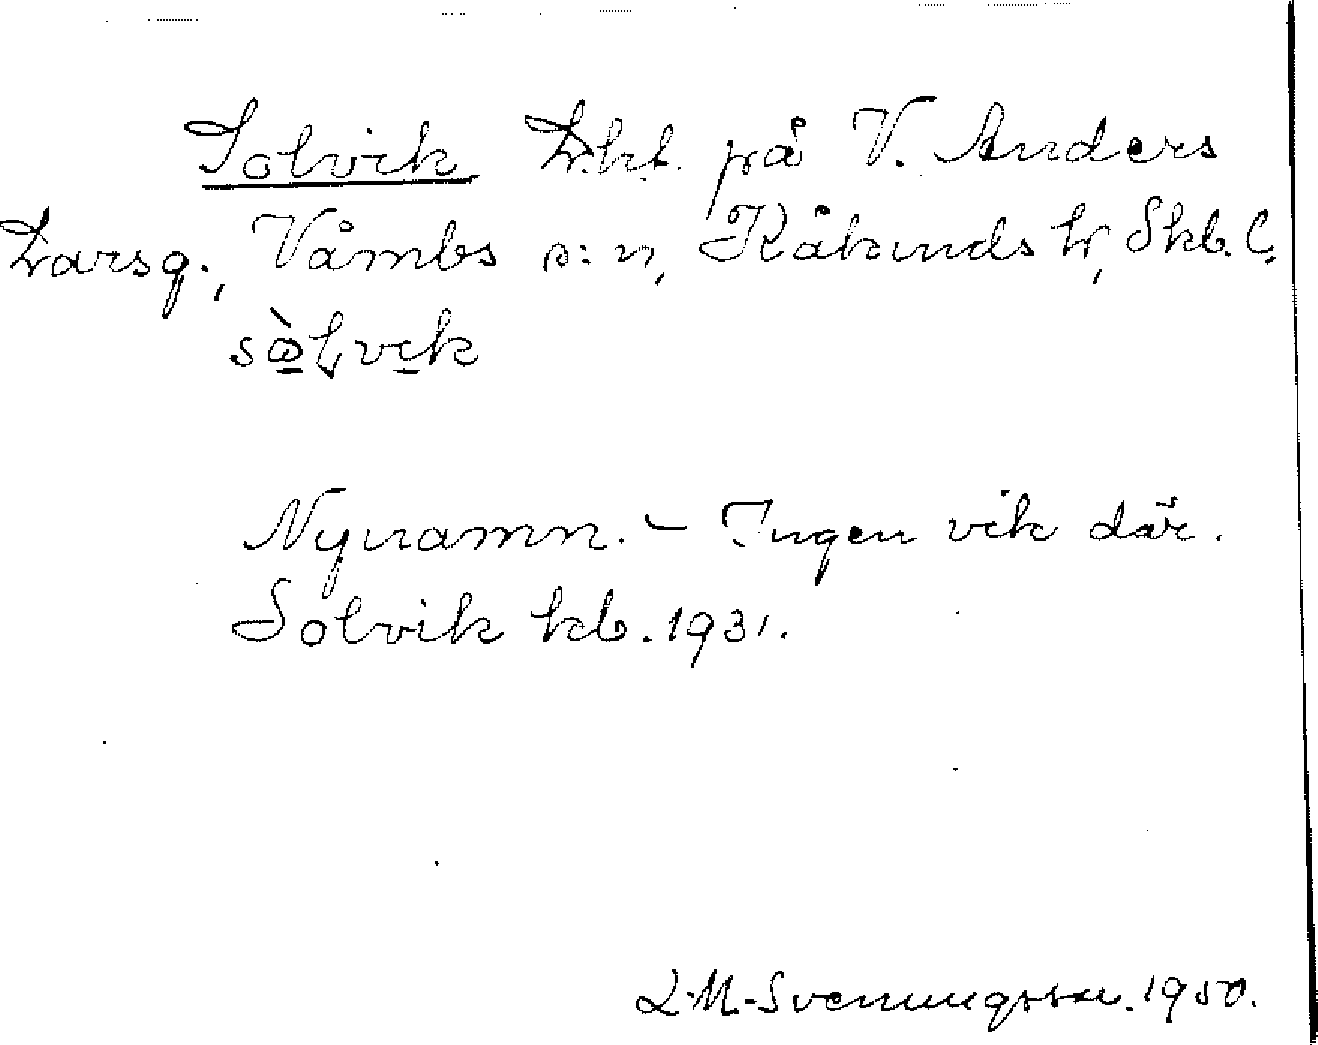 Solvik Lht. på V. Anders
Larsg., Våmbs s:n, Kåkinds hd, Skb. l.
sòlvik
Nynamn. – Ingen vik där.
Solvik kb. 1931.
L-M. Svenningsson. 1950.